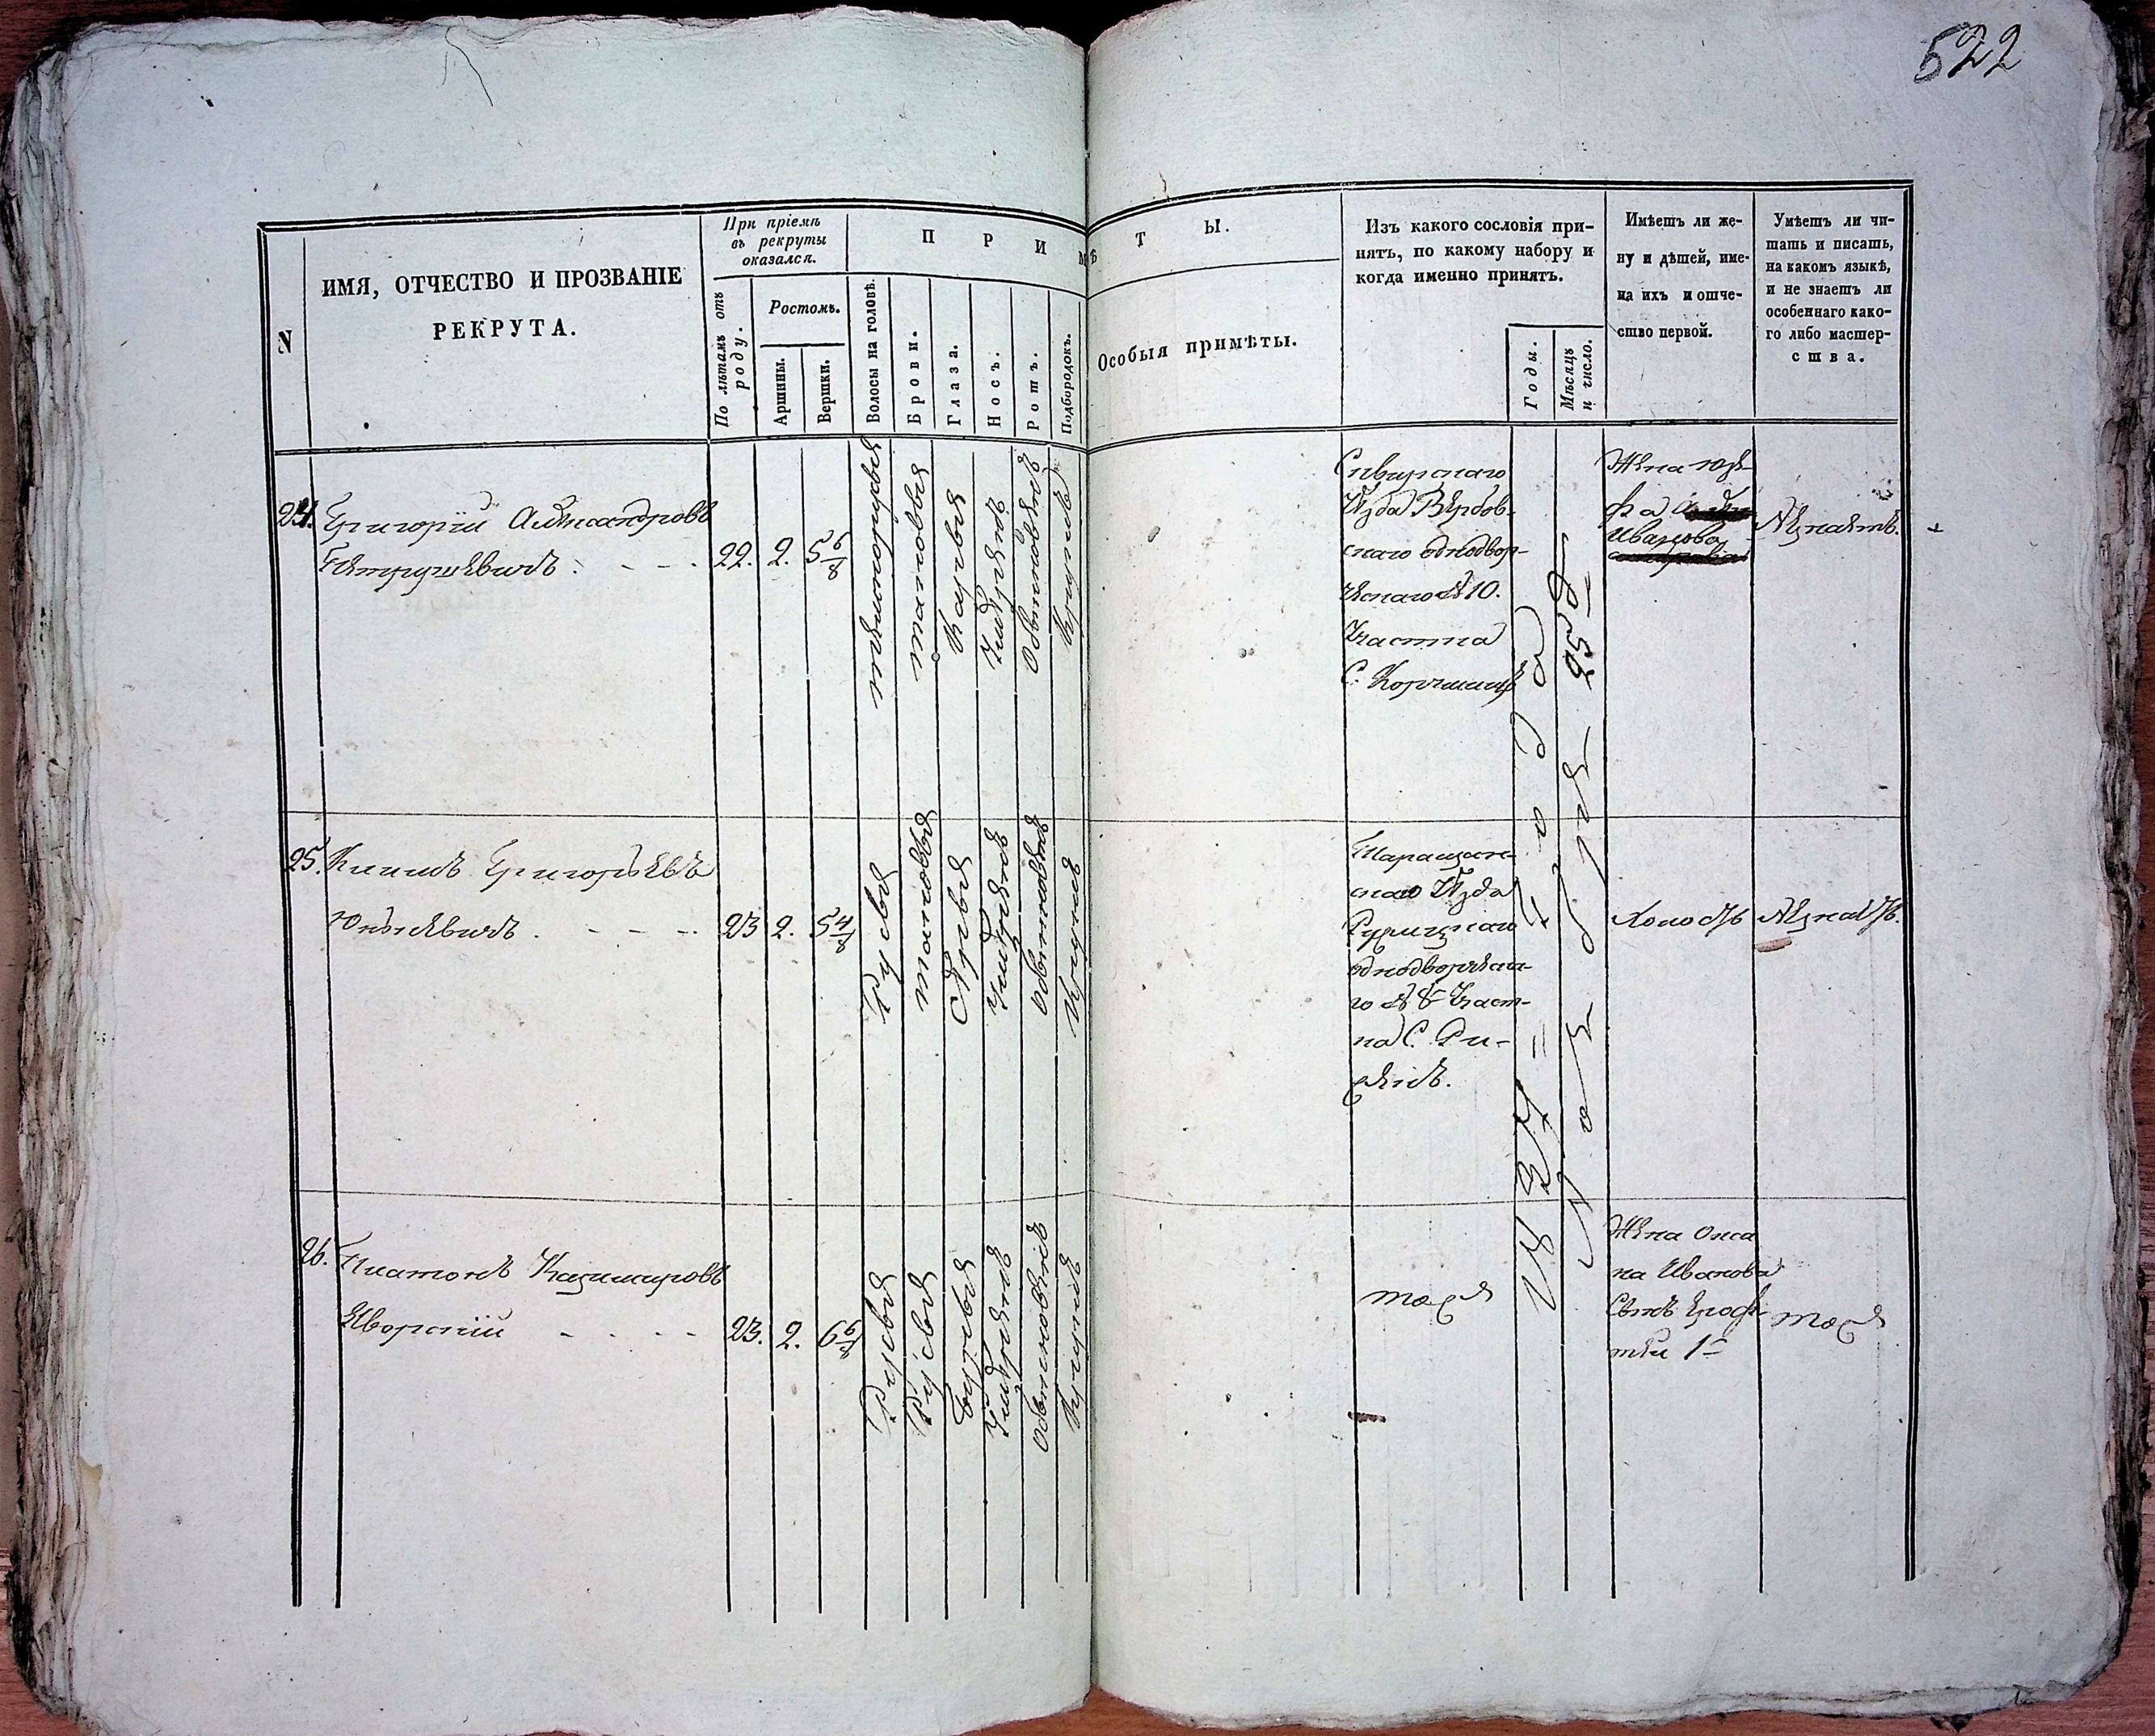 522
N
ИМЯ, ОТЧЕСТВО И ПРОЗВАНІЕ
РЕКРУТА.
При пріемѣ
въ рекруты
оказался.
По лѣтамъ отъ
роду.
Ростомъ.
Аршины.
Вершки.
П Р И М Ѣ Т Ы.
Волосы на головѣ.
Брови.
Глаза.
Носъ.
Ротъ.
Подбородокъ.
Особыя примѣты.
Изъ какого сословія при-
нятъ, по какому набору и
когда именно принятъ.
Годы.
Мѣсяцъ
и число.
Имѣетъ ли же-
ну и дѣтей, име-
на ихъ и отче-
ство первой.
Умѣетъ ли чи-
тать и писать,
на какомъ языкѣ,
и не знаетъ ли
особеннаго како-
го либо мастер-
ства.
24. Григорій Александровъ
Петрушевичъ.
22. 2. 5 6/8
темнорусые
таковые
Карые
умѣренъ
обыкновенный
Круглый
Сквирскаго
Уѣзда Вербов-
скаго однодвор-
ческаго № 10.
Участка
Жена Юзе-
фа
Иванова
Незнаетъ.
25. Климъ Григорьевъ
23 2. 5 4/8
Русые
таковые
Сѣрые
умѣренъ
обыкновенъ
Круглый
Таращан-
скаго Уѣзда
однодворческа-
го № 8 Участ-
ка С.
Холостъ
Незнаетъ.
26. Платонъ Казимировъ
Яворскій
23. 2. 6 6/8
Русые
Русые
умѣренъ
обыкновенъ
Круглый
тоже
Жена Окса
на Иванова
Сынъ
1
тоже
1834 = Года
Декабря